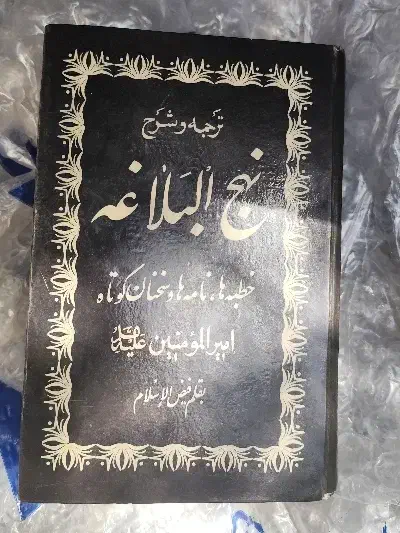 ترجمه و شرح
نهج البلاغه
خطبه ها، نامه ها و سخنان کوتاه
امیرالمؤمنین علیه السلام
بقلم فیض الإسلام